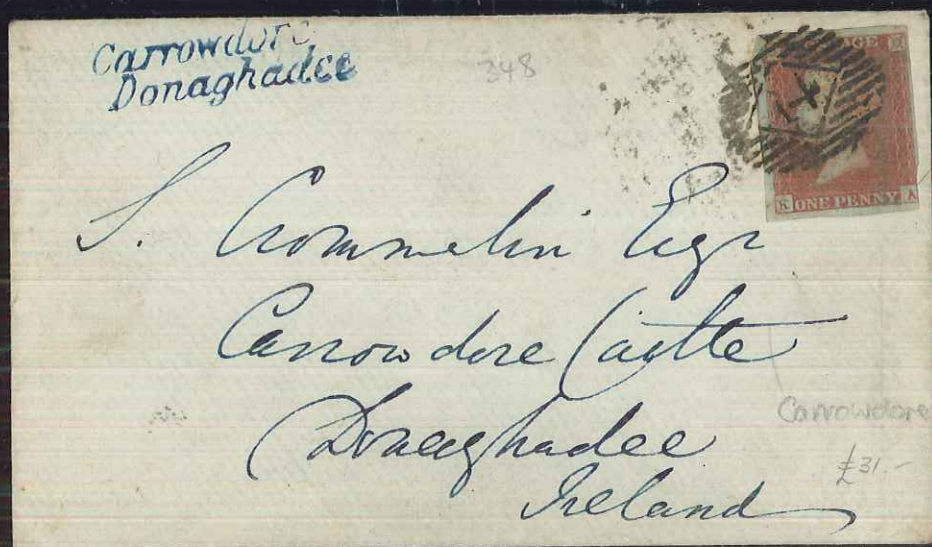 Carrowdore
Donaghadee
348
AGE
K ONE PENNY A
S. Crommelin Esqr
Carrowdore Castle
Donaghadee
Ireland
Carrowdore
£31.-